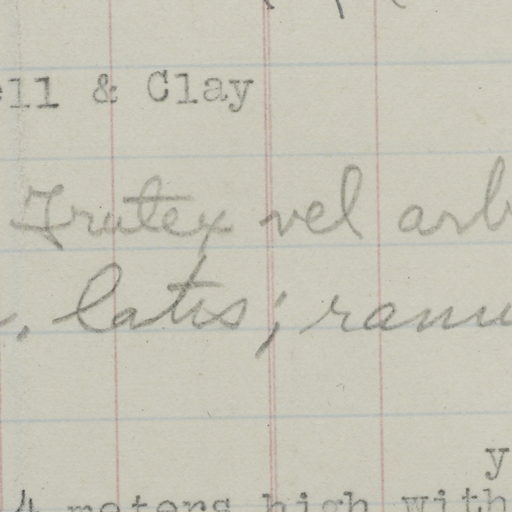 ell & Clay
Frutex vel arb
, latis; ramu
y
4 meters high with